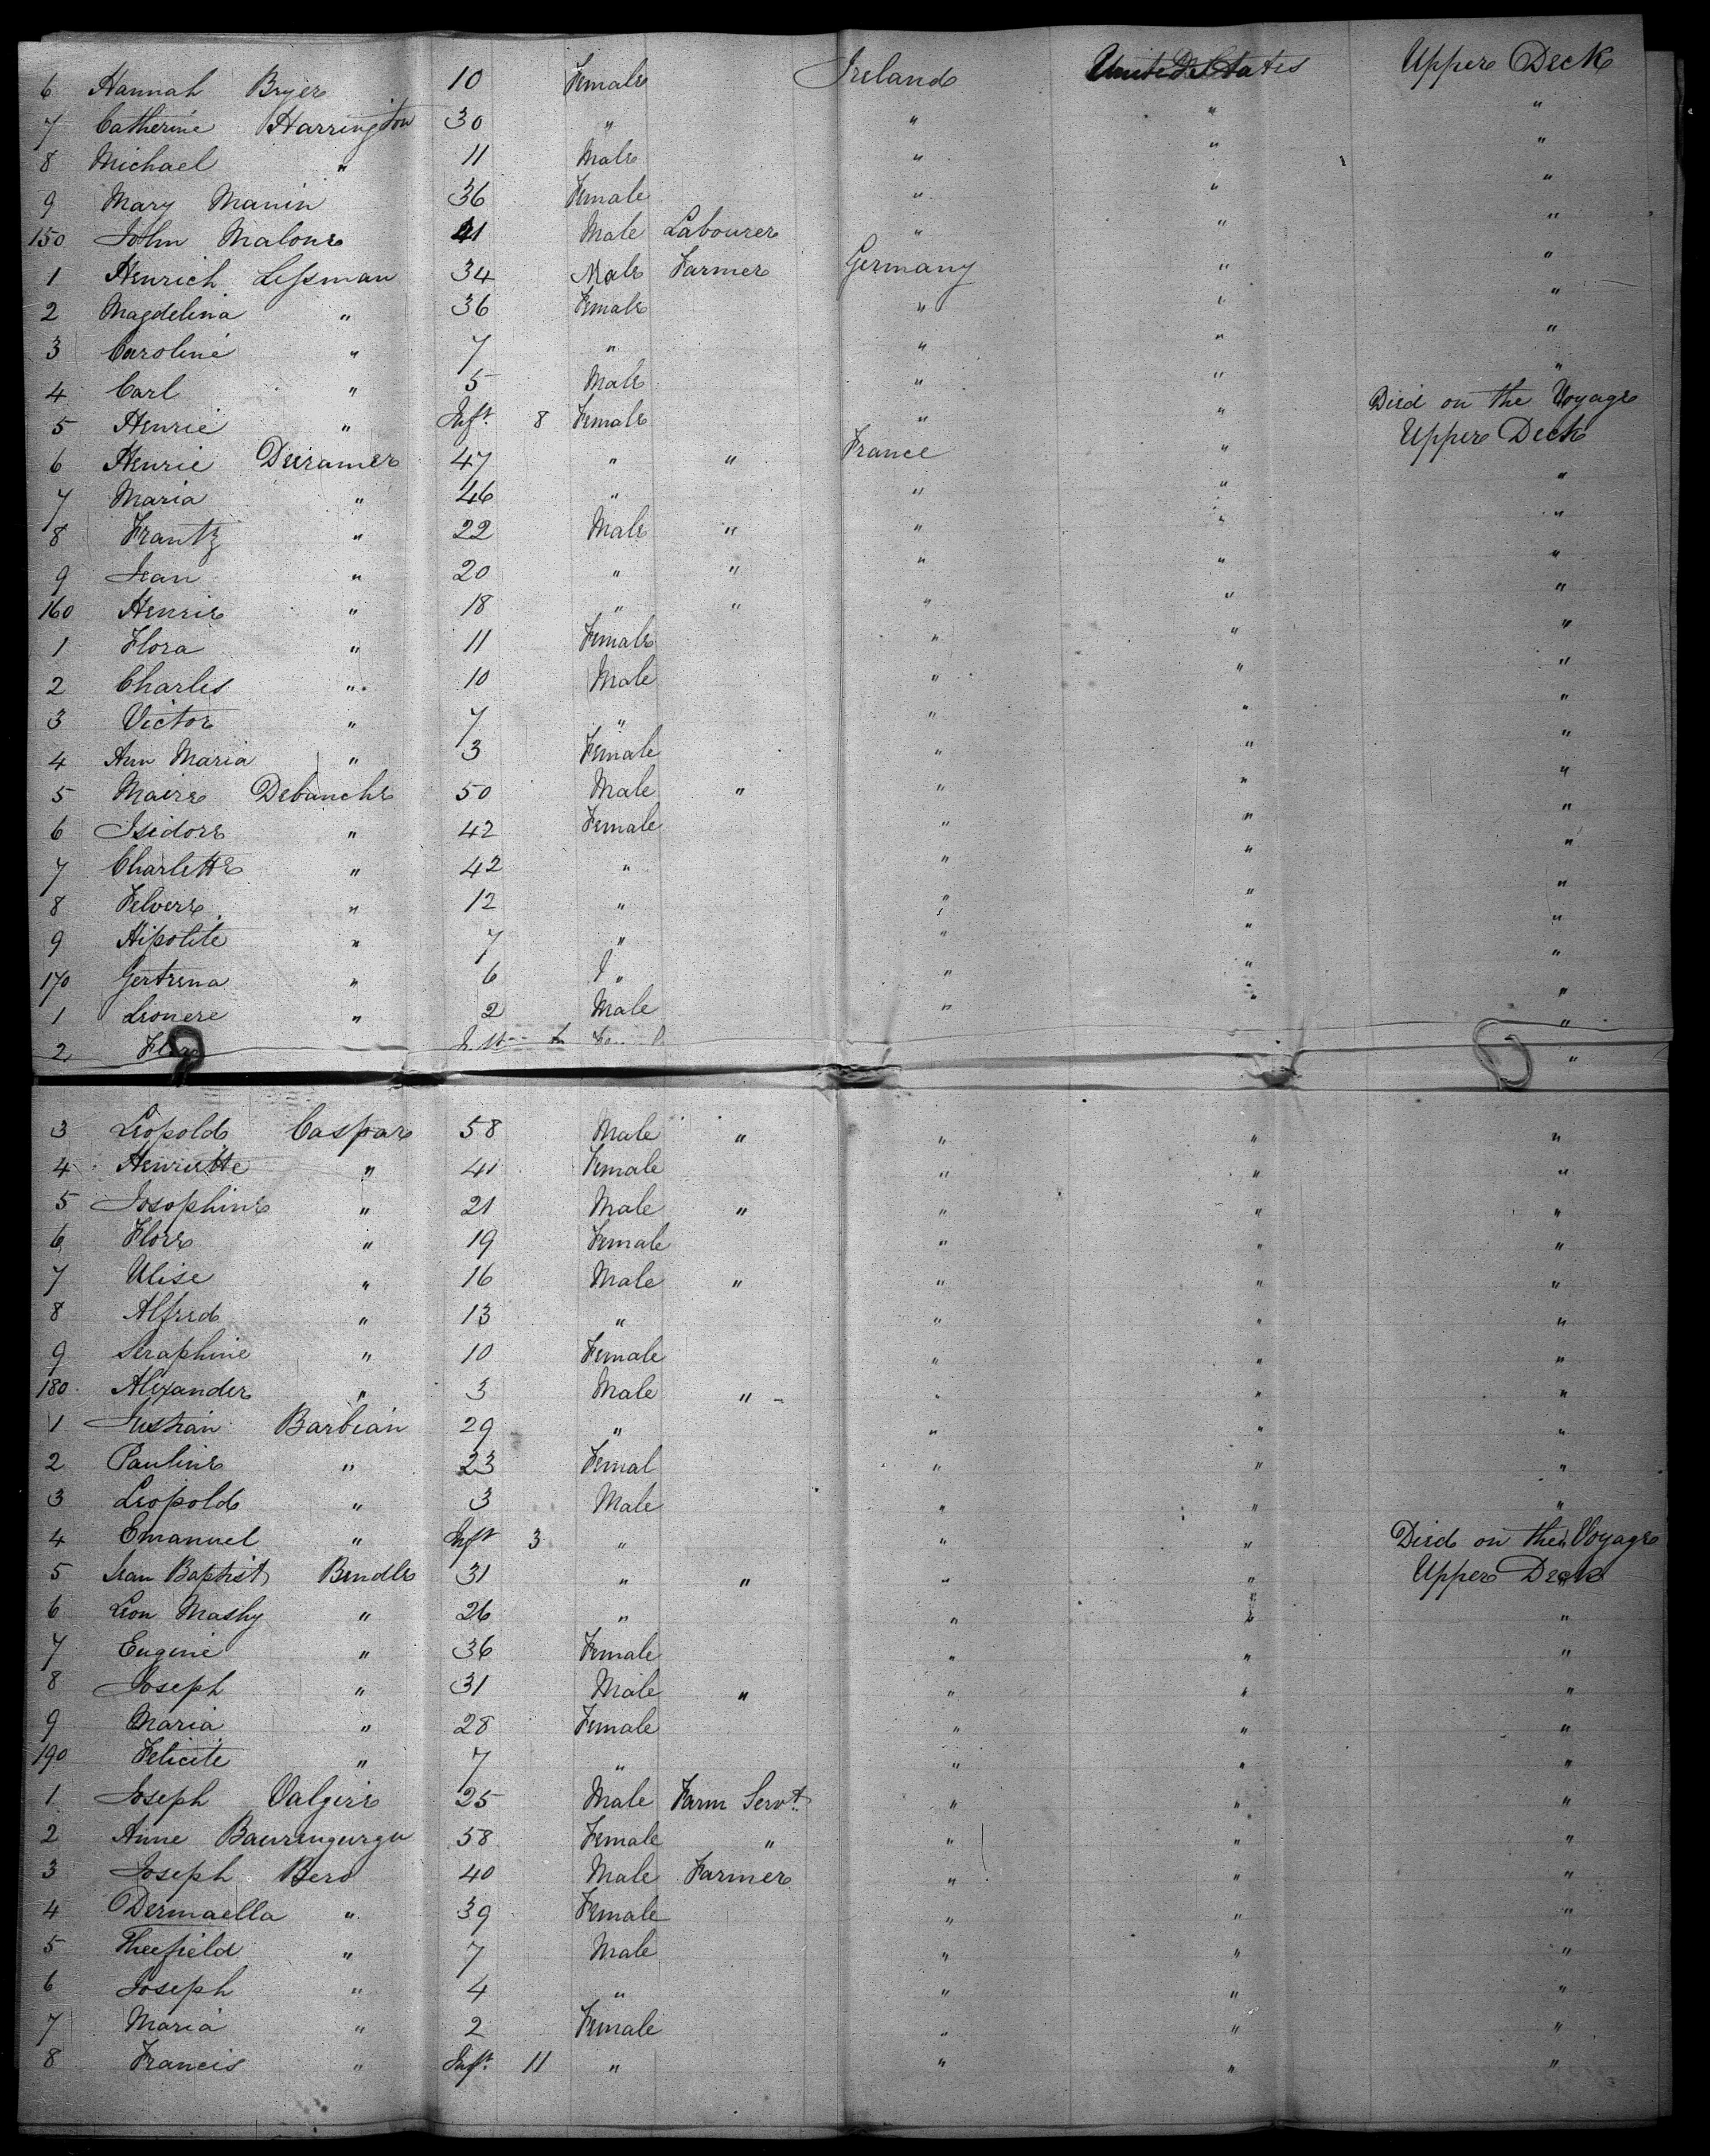 6 Hannah Bryer 10 Female Ireland United States Upper Deck
7 Catherine Harrington 30 " " " "
8 Michael " 11 Male " " "
9 Mary Manin 36 Female " " "
150 John Malone 41 Male Labourer " " "
1 Henrich Lessman 34 Male Farmer Germany " "
2 Magdelina " 36 Female " " "
3 Caroline " 7 " " " "
4 Carl " 5 Male " " "
5 Henrie " Inft. 8 Female " " Died on the Voyage
6 Henrie Deiramer 47 " " France " Upper Deck
7 Maria " 46 " " " "
8 Frantz " 22 Male " " " "
9 Jean " 20 " " " " "
160 Henrie " 18 " " " " "
1 Flora " 11 Female " " "
2 Charles " 10 Male " " "
3 Victor " 7 " " " "
4 Ann Maria " 3 Female " " "
5 Maire Debanche 50 Male " " " "
6 Isidore " 42 Female " " "
7 Charlette " 42 " " " "
8 Felvere " 12 " " " "
9 Hipolite " 7 " " " "
170 Gertrena " 6 " " " "
1 Leonere " 2 Male " " "
2 "
3 Leopold Caspar 58 Male " " " "
4 Henriette " 41 Female " " "
5 Josophine " 21 Male " " " "
6 Flore " 19 Female " " "
7 Ulise " 16 Male " " " "
8 Alfred " 13 " " " "
9 Seraphine " 10 Female " " "
180 Alexander " 3 Male " " " "
1 Justian Barbian 29 " " " "
2 Pauline " 23 Femal " " "
3 Leopold " 3 Male " " "
4 Emanuel " Inft 3 " " " Died on the Voyage
5 Jean Baptist Bendle 31 " " " " Upper Deck
6 Leon Mashy " 26 " " " "
7 Eugenie " 36 Female " " "
8 Joseph " 31 Male " " " "
9 Maria " 28 Female " " "
190 Felicite " 7 " " " "
1 Joseph Valgire 25 Male Farm Servt. " " "
2 Anne 58 Female " " " "
3 Joseph Bero 40 Male Farmer " " "
4 Dermaella " 39 Female " " "
5 Theefield " 7 Male " " "
6 Joseph " 4 " " " "
7 Maria " 2 Female " " "
8 Francis " Inft. 11 " " " "